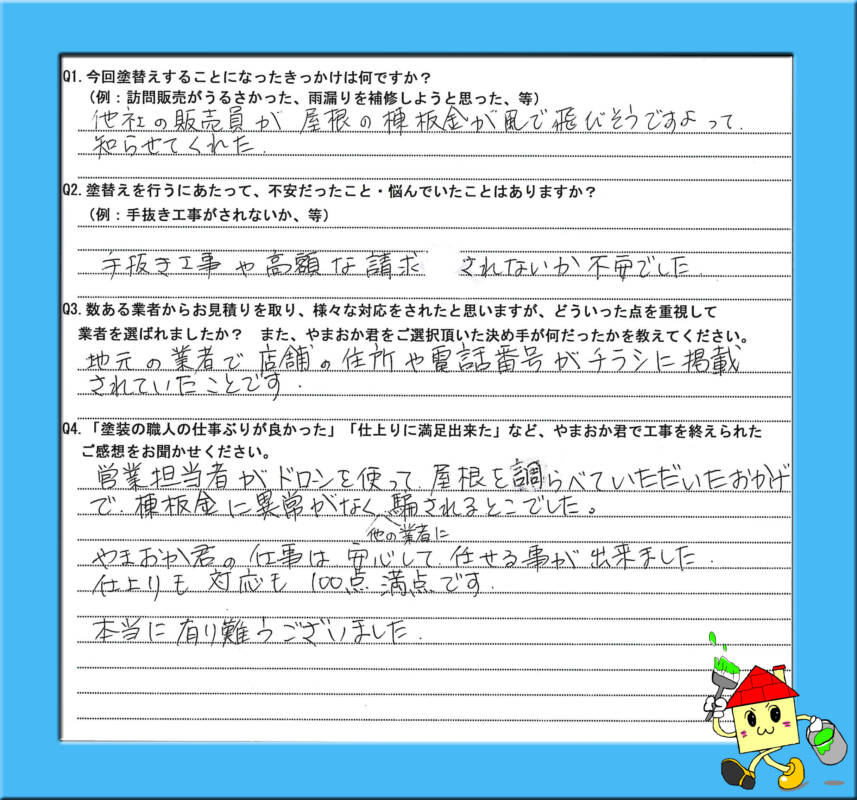 Q1. 今回塗替えすることになったきっかけは何ですか？
（例：訪問販売がうるさかった、雨漏りを補修しようと思った、等）
他社の販売員が屋根の棟板金が風で飛びそうですよって.
知らせてくれた.
Q2. 塗替えを行うにあたって、不安だったこと・悩んでいたことはありますか？
（例：手抜き工事がされないか、等）
手抜き工事や高額な請求 されないか不安でした.
Q3. 数ある業者からお見積りを取り、様々な対応をされたと思いますが、どういった点を重視して
業者を選ばれましたか？　また、やまおか君をご選択頂いた決め手が何だったかを教えてください。
地元の業者で店舗の住所や電話番号がチラシに掲載
されていたことです.
Q4. 「塗装の職人の仕事ぶりが良かった」「仕上りに満足出来た」など、やまおか君で工事を終えられた
ご感想をお聞かせください。
営業担当者がドローンを使って屋根を調らべていただいたおかげ
で.棟板金に異常がなく騙されるとこでした。
他の業者に
やまおか君の仕事は安心して任せる事が出来ました.
仕上りも対応も100点満点です.
本当に有り難うございました.